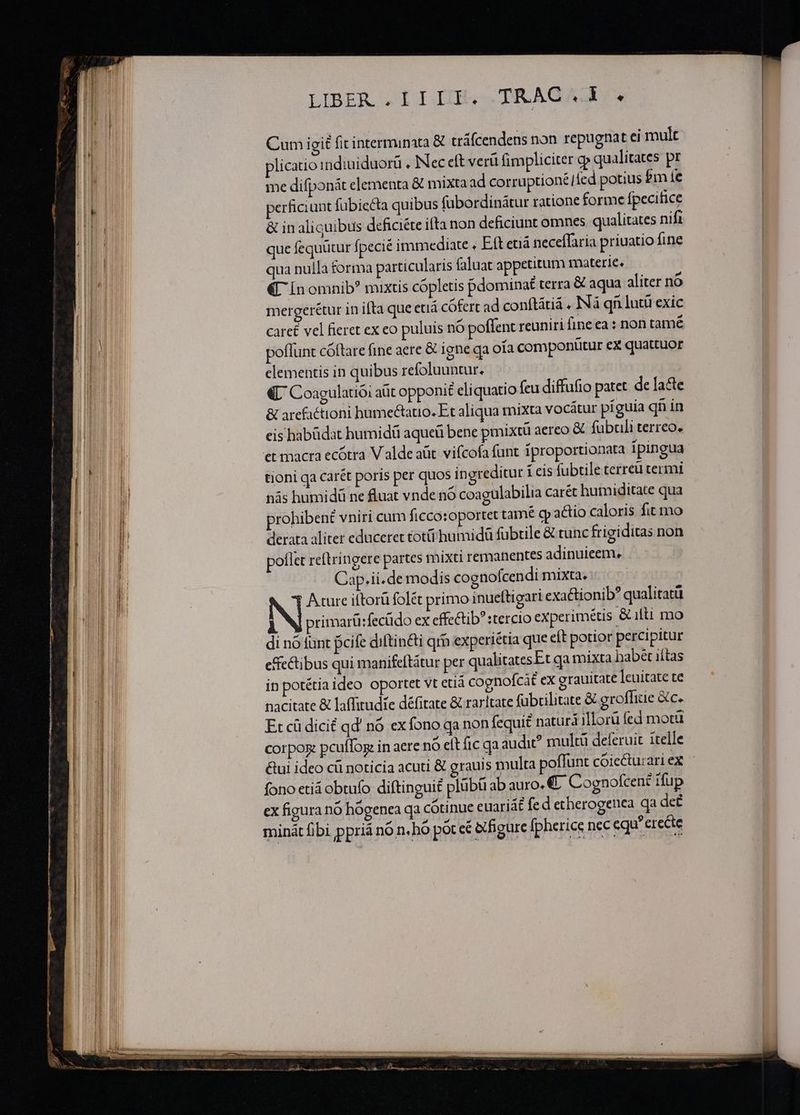 LIBER . IIII. TRAC . I .
Cum igit̃ fit interminata & trãſcendens non repugnat ei mult
plicatio indiuiduorũ . Nec eſt verũ ſimpliciter ꝙ qualitates pr
me diſponãt elementa & mixta ad corruptionẽ ſed potius ẜm ſe
perficiunt ſubiecta quibus ſubordinãtur ratione forme ſpecifice
& in aliquibus deficiẽte iſta non deficiunt omnes qualitates niſi
que ſequũtur ſpeciẽ immediate . Eſt etiã neceſſaria priuatio ſine
qua nulla forma particularis ſaluat appetitum materie.
¶ In omnib⁹ mixtis cõpletis p̃dominat̃ terra & aqua aliter nõ
mergerẽtur in iſta que etiã cõfert ad conſtãtiã . Nã qñ lutũ exic
caret̃ vel fieret ex eo puluis nõ poſſent reuniri ſine ea : non tamẽ
poſſunt cõſtare ſine aere & igne qa oĩa componũtur ex quattuor
elementis in quibus reſoluuntur.
¶ Coagulatiõi aũt opponit̃ eliquatio ſeu diffuſio patet de lacte
& arefactioni humectatio. Et aliqua mixta vocãtur pĩguia qñ in
eis habũdat humidũ aqueũ bene pmixtũ aereo & ſubtili terreo.
et macra ecõtra Valde aũt viſcoſa ſunt ĩproportionata ĩpingua
tioni qa carẽt poris per quos ingreditur ĩ eis ſubtile terreũ termi
nãs humidũ ne fluat vnde nõ coagulabilia carẽt humiditate qua
prohibent̃ vniri cum ſicco: oportet tamẽ ꝙ actio caloris ſit mo
derata aliter educeret totũ humidũ ſubtile & tunc frigiditas non
poſſet reſtringere partes mixti remanentes adinuicem.
Cap.ii. de modis cognoſcendi mixta.
NAture iſtorũ ſolẽt primo inueſtigari exactionib⁹ qualitatũ
primarũ: ſecũdo ex effectib⁹: tercio experimẽtis & iſti mo
di nõ ſunt p̃ciſe diſtincti qm̃ experiẽtia que eſt potior percipitur
effectibus qui manifeſtãtur per qualitates Et qa mixta habẽt iſtas
in potẽtia ideo oportet vt etiã cognoſcãt̃ ex grauitate leuitate te
nacitate & laſſitudĩe dẽſitate & raritate ſubtilitate & groſſicie &c.
Et cũ dicit̃ qđ nõ ex ſono qa non ſequit̃ naturã illorũ ſed motũ
corpoꝝ pcuſſoꝝ in aere nõ eſt ſic qa audit⁹ multũ deſeruit ĩtelle
ctui ideo cũ noticia acuti & grauis multa poſſunt cõiecturari ex
ſono etiã obtuſo diſtinguit̃ plũbũ ab auro. ¶ Cognoſcent̃ iſup
ex figura nõ hõgenea qa cõtinue euariãt̃ ſed etherogenea qa det̃
minãt ſibi ppriã nõ n. hõ põt eẽ &figure ſpherice nec equ⁹ erecte